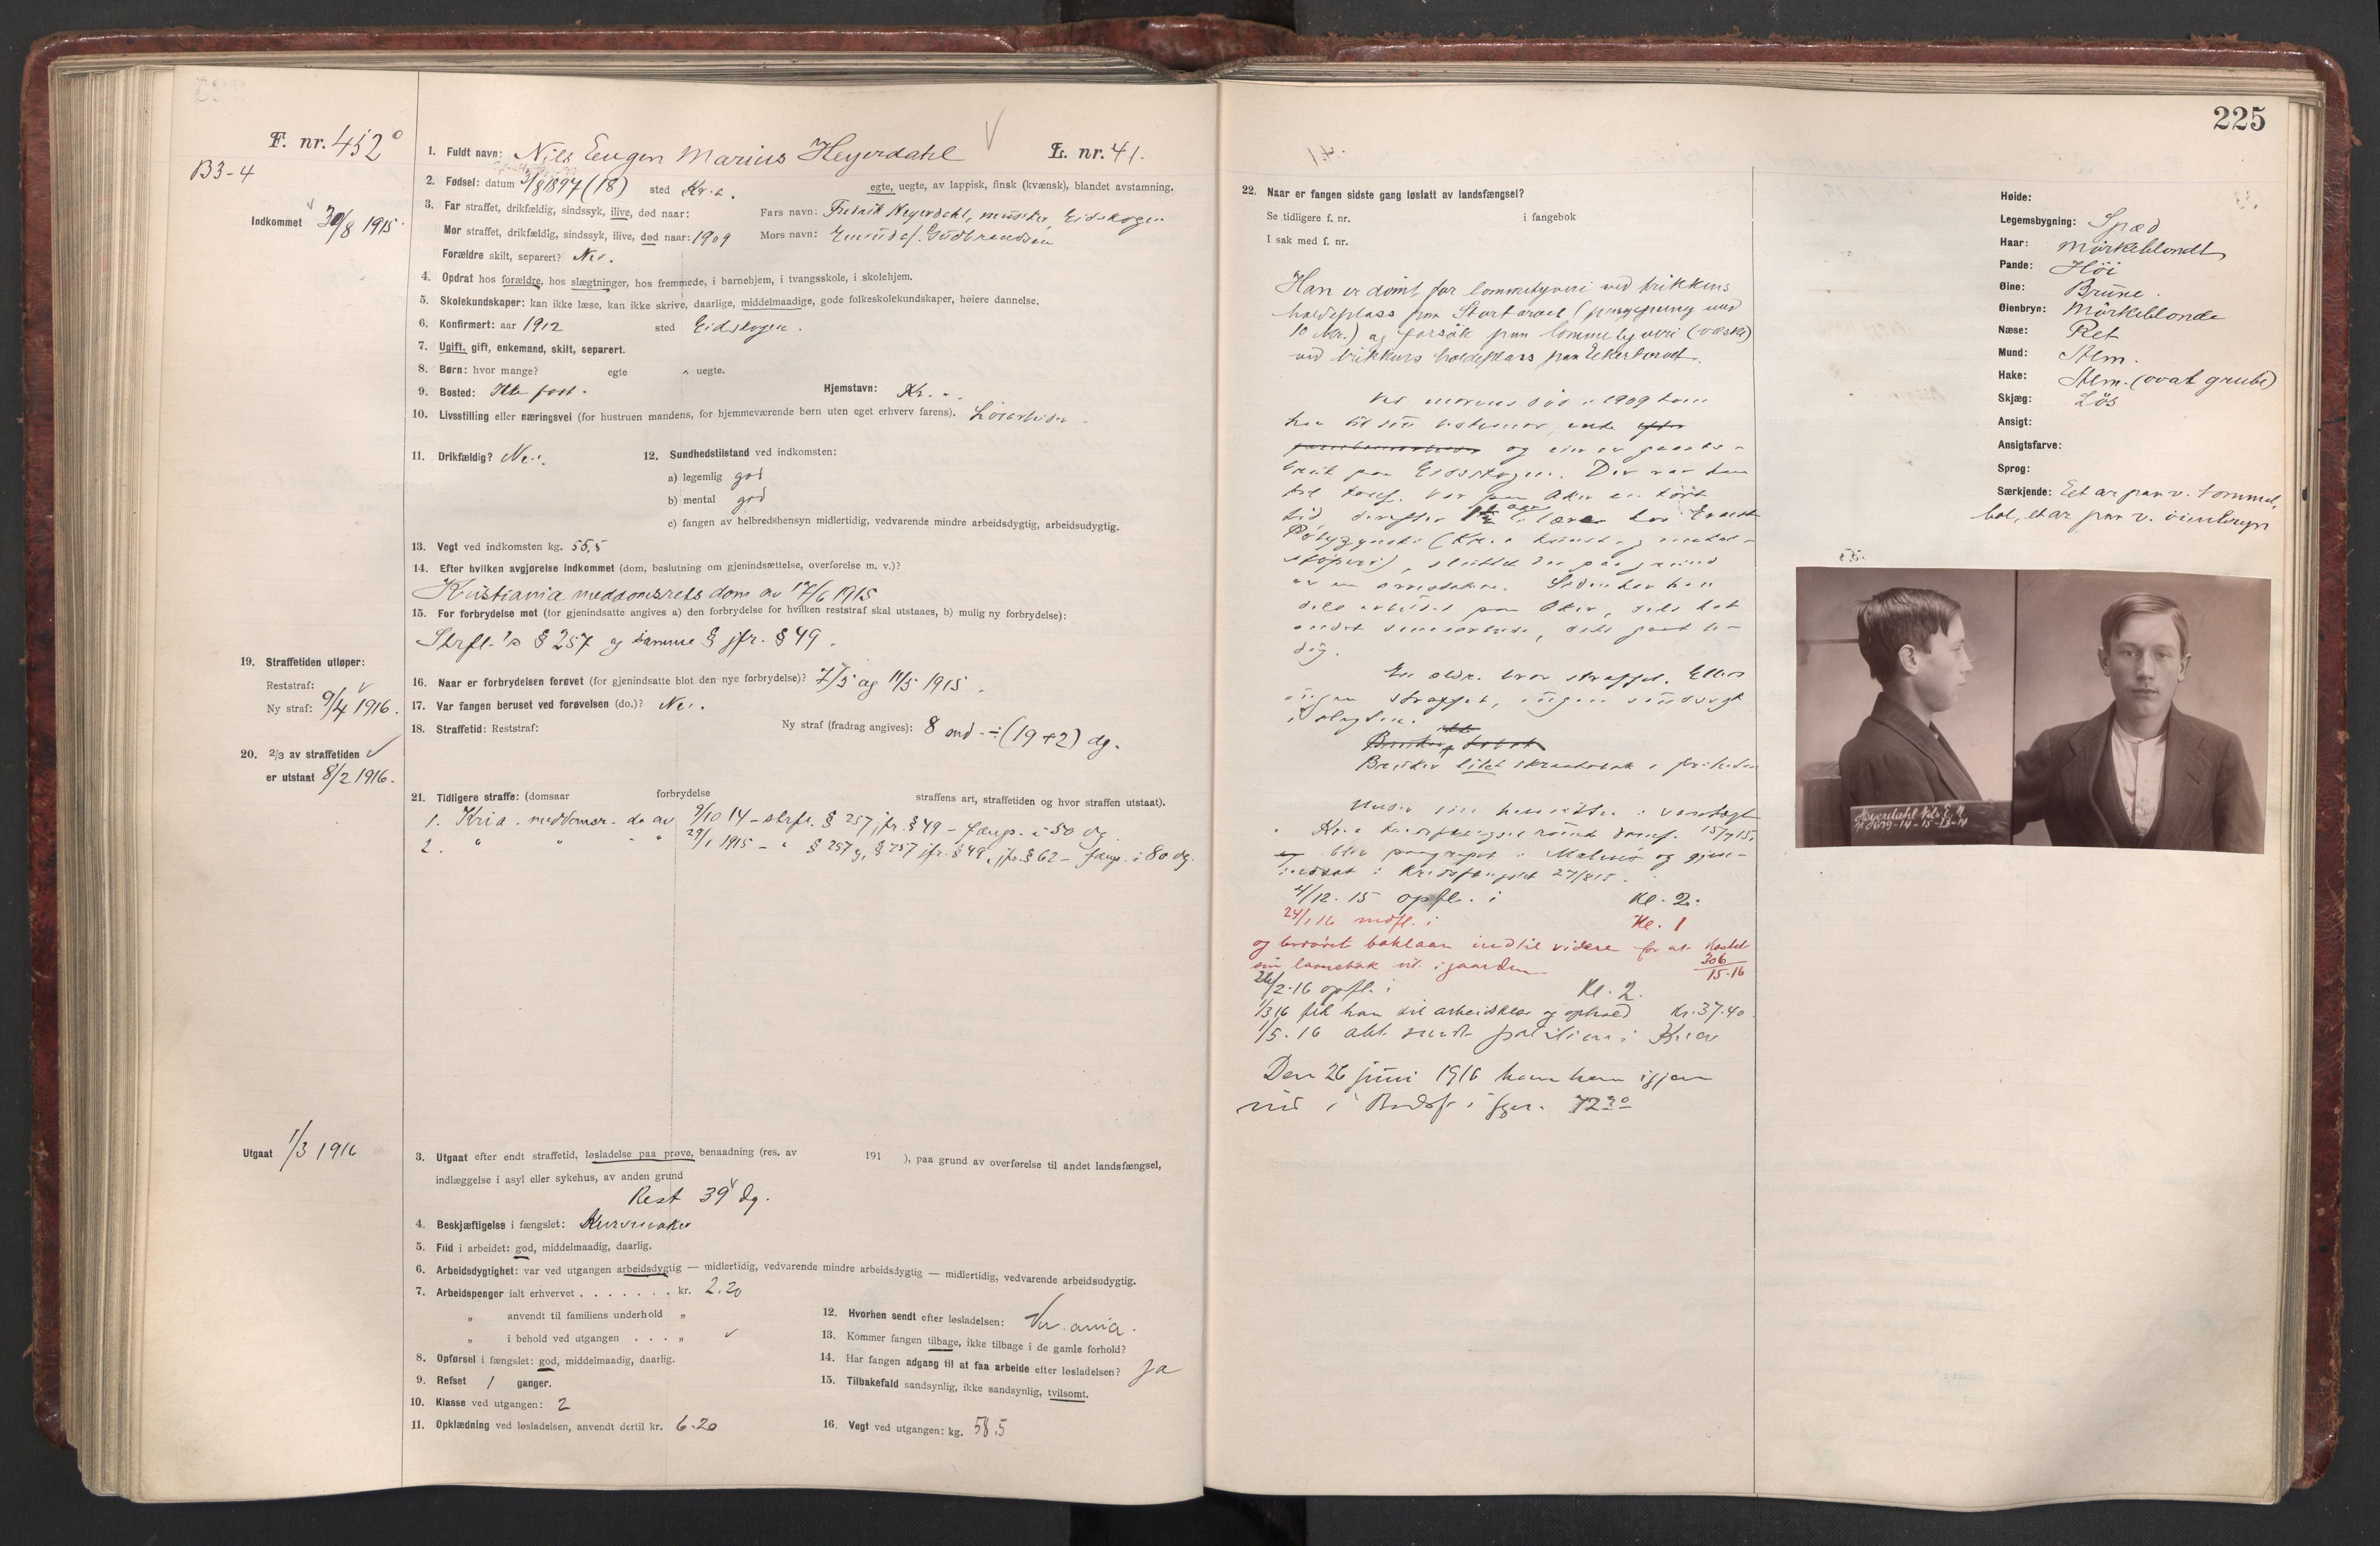 F. nr. 452°
B3-4
1. Fuldt navn: Nils Eugen Marius Heyerdahl
L. nr. 41.
2. Fødsel: datum 3/8 1897 (18) sted Kr.a. egte, uegte, av lappisk, finsk (kvænsk), blandet avstamning.
Indkommet 30/8 1915.
3. Far straffet, drikfældig, sindssyk, ilive, død naar: Fars navn: Fredrik Heyerdahl, murer, Eidskogen
Mor straffet, drikfældig, sindssyk, ilive, død naar: 1909 Mors navn: Gudbrandsen
Forældre skilt, separert? Nei.
4. Opdrat hos forældre, hos slægtninger, hos fremmede, i barnehjem, i tvangsskole, i skolehjem.
5. Skolekundskaper: kan ikke læse, kan ikke skrive, daarlige, middelmaadige, gode folkeskolekundskaper, høiere dannelse.
6. Konfirmert: aar 1912 sted Eidskogen.
7. Ugift, gift, enkemand, skilt, separert.
8. Børn: hvor mange? egte " uegte.
9. Bosted: Ikke fast. Hjemstavn: Kr.a.
10. Livsstilling eller næringsvei (for hustruen mandens, for hjemmeværende børn uten eget erhverv farens). Løsarbeider.
11. Drikfældig? Nei.
12. Sundhedstilstand ved indkomsten:
a) legemlig god
b) mental god
c) fangen av helbredshensyn midlertidig, vedvarende mindre arbeidsdygtig, arbeidsudygtig.
13. Vegt ved indkomsten kg. 55,5
14. Efter hvilken avgjørelse indkommet (dom, beslutning om gjenindsættelse, overførelse m. v.)?
Kristiania meddomsrets dom av 17/6 1915
15. For forbrydelse mot (for gjenindsatte angives a) den forbrydelse for hvilken reststraf skal utstaaes, b) mulig ny forbrydelse):
Strfl.'s § 257 og samme § jfr. § 49.
19. Straffetiden utløper:
Reststraf:
Ny straf: 9/4 1916.
16. Naar er forbrydelsen forøvet (for gjenindsatte blot den nye forbrydelse)? 7/5 og 11/5 1915.
17. Var fangen beruset ved forøvelsen (do.)? Nei.
18. Straffetid: Reststraf: Ny straf (fradrag angives): 8 md. ÷ (19+2) dg.
20. 2/3 av straffetiden
er utstaat 8/2 1916.
21. Tidligere straffe: (domsaar forbrydelse straffens art, straffetiden og hvor straffen utstaat).
1. Kria. meddomsr. do av 9/10 14 - strfl. § 257 jfr. § 49 - fængs. i 50 dg.
2. " " " 29/1 1915 - " § 257 og § 257 jfr. § 49, jfr. § 62 - fængs. i 80 dg.
Utgaat 1/3 1916
3. Utgaat efter endt straffetid, løsladelse paa prøve, benaadning (res. av 191 ), paa grund av overførelse til andet landsfængsel,
indlæggelse i asyl eller sykehus, av anden grund
Rest 39 dg.
4. Beskjæftigelse i fængslet: Kurvmaker
5. Flid i arbeidet: god, middelmaadig, daarlig.
6. Arbeidsdygtighet: var ved utgangen arbeidsdygtig — midlertidig, vedvarende mindre arbeidsdygtig — midlertidig, vedvarende arbeidsudygtig.
7. Arbeidspenger ialt erhvervet . . . . . . . kr. 2.20
" anvendt til familiens underhold "
" i behold ved utgangen . . . "
8. Opførsel i fængslet: god, middelmaadig, daarlig.
9. Refset 1 ganger.
10. Klasse ved utgangen: 2
11. Opklædning ved løsladelsen, anvendt dertil kr. 6.20
12. Hvorhen sendt efter løsladelsen: Kr.ania.
13. Kommer fangen tilbage, ikke tilbage i de gamle forhold?
14. Har fangen adgang til at faa arbeide efter løsladelsen? Ja
15. Tilbakefald sandsynlig, ikke sandsynlig, tvilsomt.
16. Vegt ved utgangen: kg. 58.5
225
22. Naar er fangen sidste gang løslatt av landsfængsel?
Se tidligere f. nr. i fangebok
I sak med f. nr.
Han er dømt for lommetyveri ved trikkens
holdeplass paa Stortorvet (pengepung med
10 Kr.) og forsøk paa lommetyveri (væske)
ved trikkens holdeplass paa
Ved morens død i 1909 kom
han til sin
og
paa Eidskogen. Der var han
til konf. Var paa Aker en kort
tid derefter
sluttet der paa grund
av en arrestation. Siden har han
dels arbeidet paa Aker, dels hat
andet dels gaat le-
dig.
En eldr. bror straffet. Ellers
ingen straffet, ingen sindssyk
i slegten.
Bruker litet skraatobak i friheten
Under
15/7 15,
blev paagrepet i Malmø og gjen-
indsat i Kredsfængslet 27/8 15.
4/12.15 opfl. i Kl. 2.
24/1 16 nedfl. i Kl. 1
og berøvet indtil videre for at kastet
sin laanebok ut i gaarden 306/15-16
26/2.16 opfl. i Kl. 2.
1/3 16 fik han til arbeidsklær og ophold Kr. 37.40
1/5.16 att. sendt politiet i Kria
Den 26 juni 1916 kom han igjen
ind i Bodsf. i fgnr. 72
Høide:
Legemsbygning: Spæd
Haar: Mørkeblondt
Pande: Høi
Øine: Brune.
Øienbryn: Mørkeblonde
Næse: Ret
Mund: Alm.
Hake: Alm. (oval grube)
Skjæg: Løs
Ansigt:
Ansigtsfarve:
Sprog:
Særkjende: Et ar paa v. tommel,
et ar paa v. øienbryn
Heyerdahl Nils E. M.